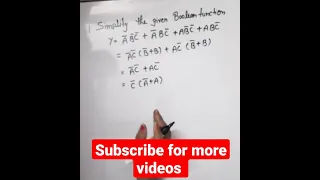 Simplify the given Boolean function
Y = A̅B̅C̅ + A̅BC̅ + AB̅C̅ + ABC̅
= A̅C̅ (B̅+B) + AC̅ (B̅+B)
= A̅C̅ + AC̅
= C̅ (A̅+A)
Subscribe for more
videos